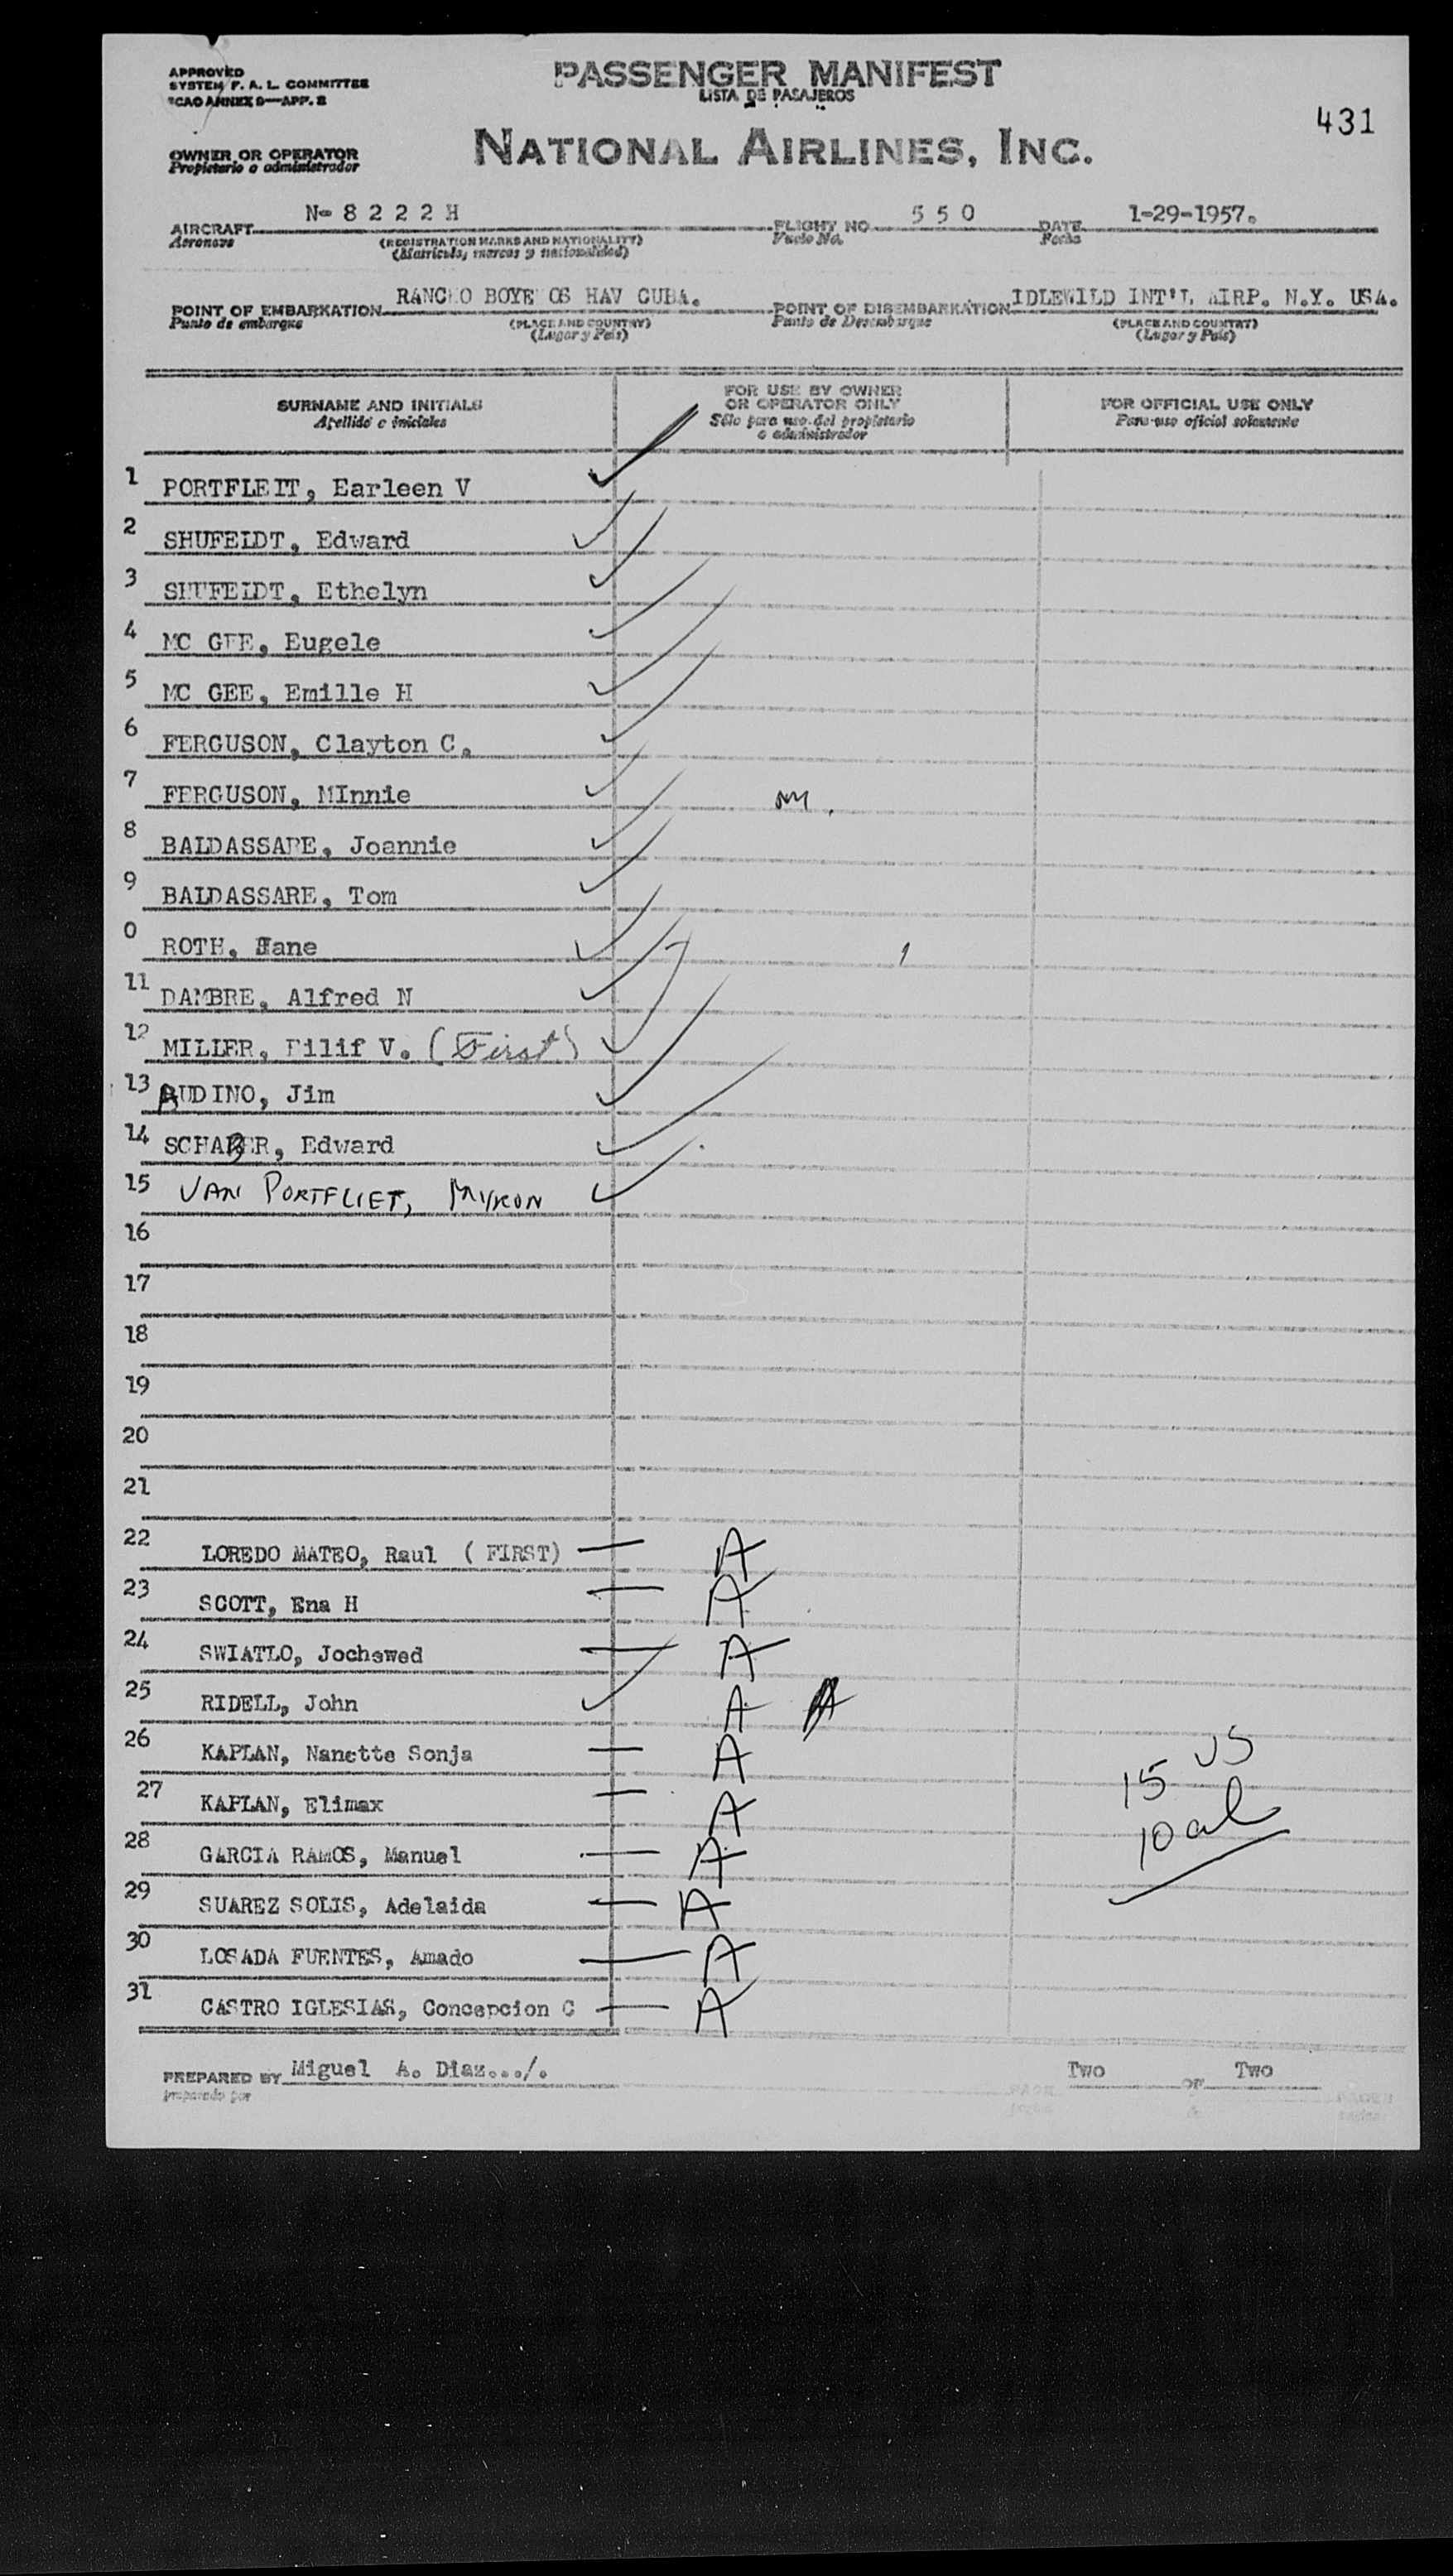 APPROVED
SYSTEM F. A. L. COMMITTEE
ICAO ANNEX 9—APP. 2
PASSENGER MANIFEST
LISTA DE PASAJEROS
431
OWNER OR OPERATOR
Propietario o administrador
NATIONAL AIRLINES, INC.
AIRCRAFT N- 8 2 2 2 H FLIGHT NO. 5 5 0 DATE 1-29-1957.
Aeronave (REGISTRATION MARKS AND NATIONALITY) Vuelo No. Fecha
(Matricula, marcas y nacionalidad)
POINT OF EMBARKATION RANCHO BOYEROS HAV CUBA. POINT OF DISEMBARKATION IDLEWILD INT'L AIRP. N.Y. USA.
Punto de embarque (PLACE AND COUNTRY) Punto de Desembarque (PLACE AND COUNTRY)
(Lugar y País) (Lugar y País)
SURNAME AND INITIALS
Apellido e iniciales
FOR USE BY OWNER
OR OPERATOR ONLY
Sólo para uso del propietario
o administrador
FOR OFFICIAL USE ONLY
Para uso oficial solamente
1 PORTFLEIT, Earleen V
2 SHUFELDT, Edward
3 SHUFELDT, Ethelyn
4 MC GEE, Eugele
5 MC GEE, Emille H
6 FERGUSON, Clayton C.
7 FERGUSON, MInnie
8 BALDASSARE, Joannie
9 BALDASSARE, Tom
0 ROTH, Jane
11 DAMBRE, Alfred N
12 MILLER, Filif V. (First)
13 AUDINO, Jim
14 SCHABER, Edward
15 VAN PORTFLIET, MYRON
16
17
18
19
20
21
22 LOREDO MATEO, Raul ( FIRST) — A
23 SCOTT, Ena H — A
24 SWIATLO, Jochewed — A
25 RIDELL, John A
26 KAPLAN, Nanette Sonja — A
27 KAPLAN, Elimax — A
28 GARCIA RAMOS, Manuel — A
29 SUAREZ SOLIS, Adelaida — A
30 LOSADA FUENTES, Amado — A
31 CASTRO IGLESIAS, Concepcion C — A
15 US
10 al
PREPARED BY Miguel A. Diaz.../. Two OF Two
preparado por